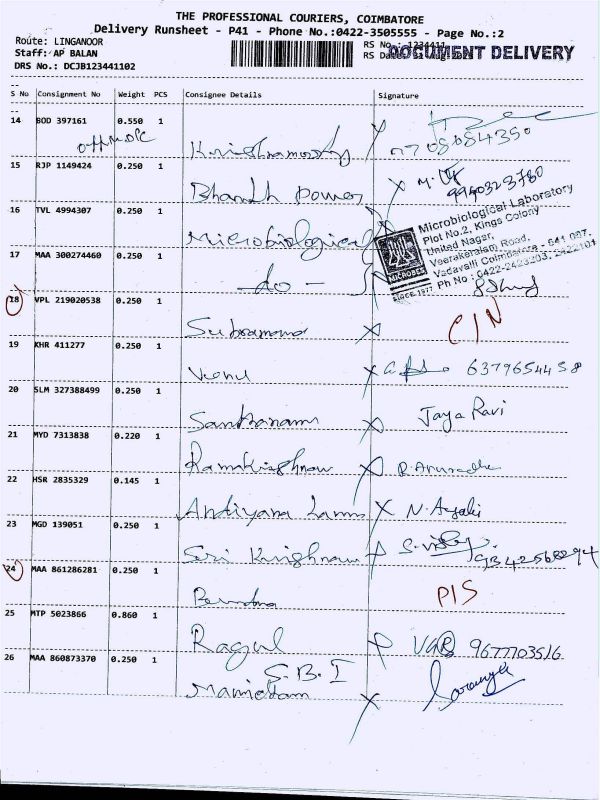 THE PROFESSIONAL COURIERS, COIMBATORE
Delivery Runsheet - P41 - Phone No.:0422-3505555 - Page No.:2
Route: LINGANOOR
Staff: AP BALAN
DRS No.: DCJB123441102
RS No.: 1234411
RS Date:
DOCUMENT DELIVERY
S No Consignment No Weight PCS Consignee Details Signature
14 BOD 397161 0.550 1
Krishnamoorthy
15 RJP 1149424 0.250 1
Bharath Power 9940323780
16 TVL 4994307 0.250 1
Microbiological
Microbiological Laboratory
Plot No.2, Kings Colony
United Nagar,
Veerakeralam Road,
Vadavalli Coimbatore - 641 007.
Ph No : 0422-2423203, 2422101
MICROBES
SINCE 1977
17 MAA 300274460 0.250 1
- do -
18 VPL 219020538 0.250 1
C/N
19 KHR 411277 0.250 1
Venu 6379654458
20 SLM 327388499 0.250 1
Santhanam Jaya Ravi
21 MYD 7313838 0.220 1
Ramakrishnan R. Anuradha
22 HSR 2835329 0.145 1
23 MGD 139051 0.250 1
Sri Krishnan
24 MAA 861286281 0.250 1
P/S
25 MTP 5023866 0.860 1
Ragul 9677703516
26 MAA 860873370 0.250 1
S.B.I